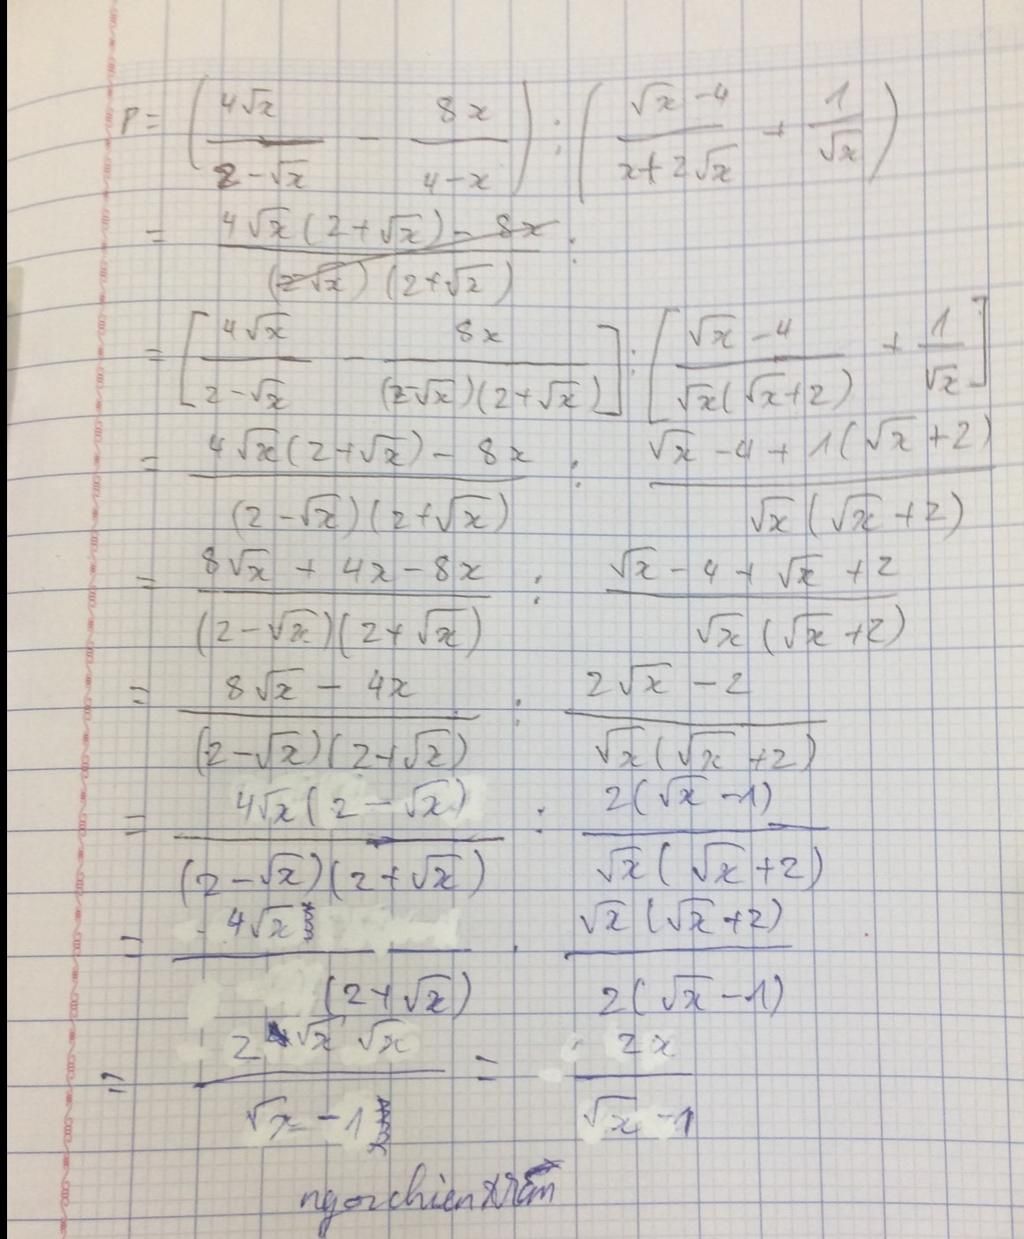 P = (4√x / 2-√x - 8x / 4-x) : (√x -4 / x+2√x + 1 / √x)
= 4√x(2+√x) - 8x / (2-√x)(2+√x) :
= [4√x / 2-√x - 8x / (2-√x)(2+√x)] : [√x -4 / √x(√x+2) + 1 / √x]
= 4√x(2+√x) - 8x / (2-√x)(2+√x) : √x -4 + 1(√x+2) / √x(√x+2)
= 8√x + 4x - 8x / (2-√x)(2+√x) : √x -4 + √x +2 / √x(√x+2)
= 8√x - 4x / (2-√x)(2+√x) : 2√x -2 / √x(√x+2)
= 4√x(2-√x) / (2-√x)(2+√x) : 2(√x -1) / √x(√x+2)
= 4√x / (2+√x) . √x(√x+2) / 2(√x -1)
= 2√x √x / √x -1 = 2x / √x -1